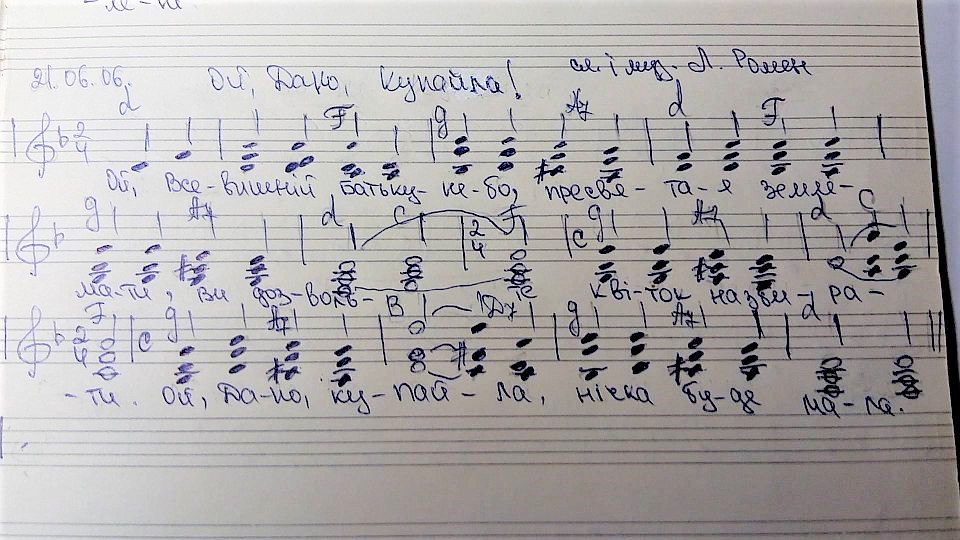 - ле - не.
21.06.06. Ой, Дано, Купайла! сл. і муз. Л. Ромен
d F g A7 d F
2 4
Ой, Все-вишній батьку-не-бо, пресвя-та-я земле-
g A7 d C F g A7 d C
2 4 C
ма-ти, ви доз-воль-те кві-токназби-ра-
F g A7 B D7 g A7 d
2 4 C
-ти. Ой, Да-но, ку-пай-ла, нічка бу-де ма-ла.